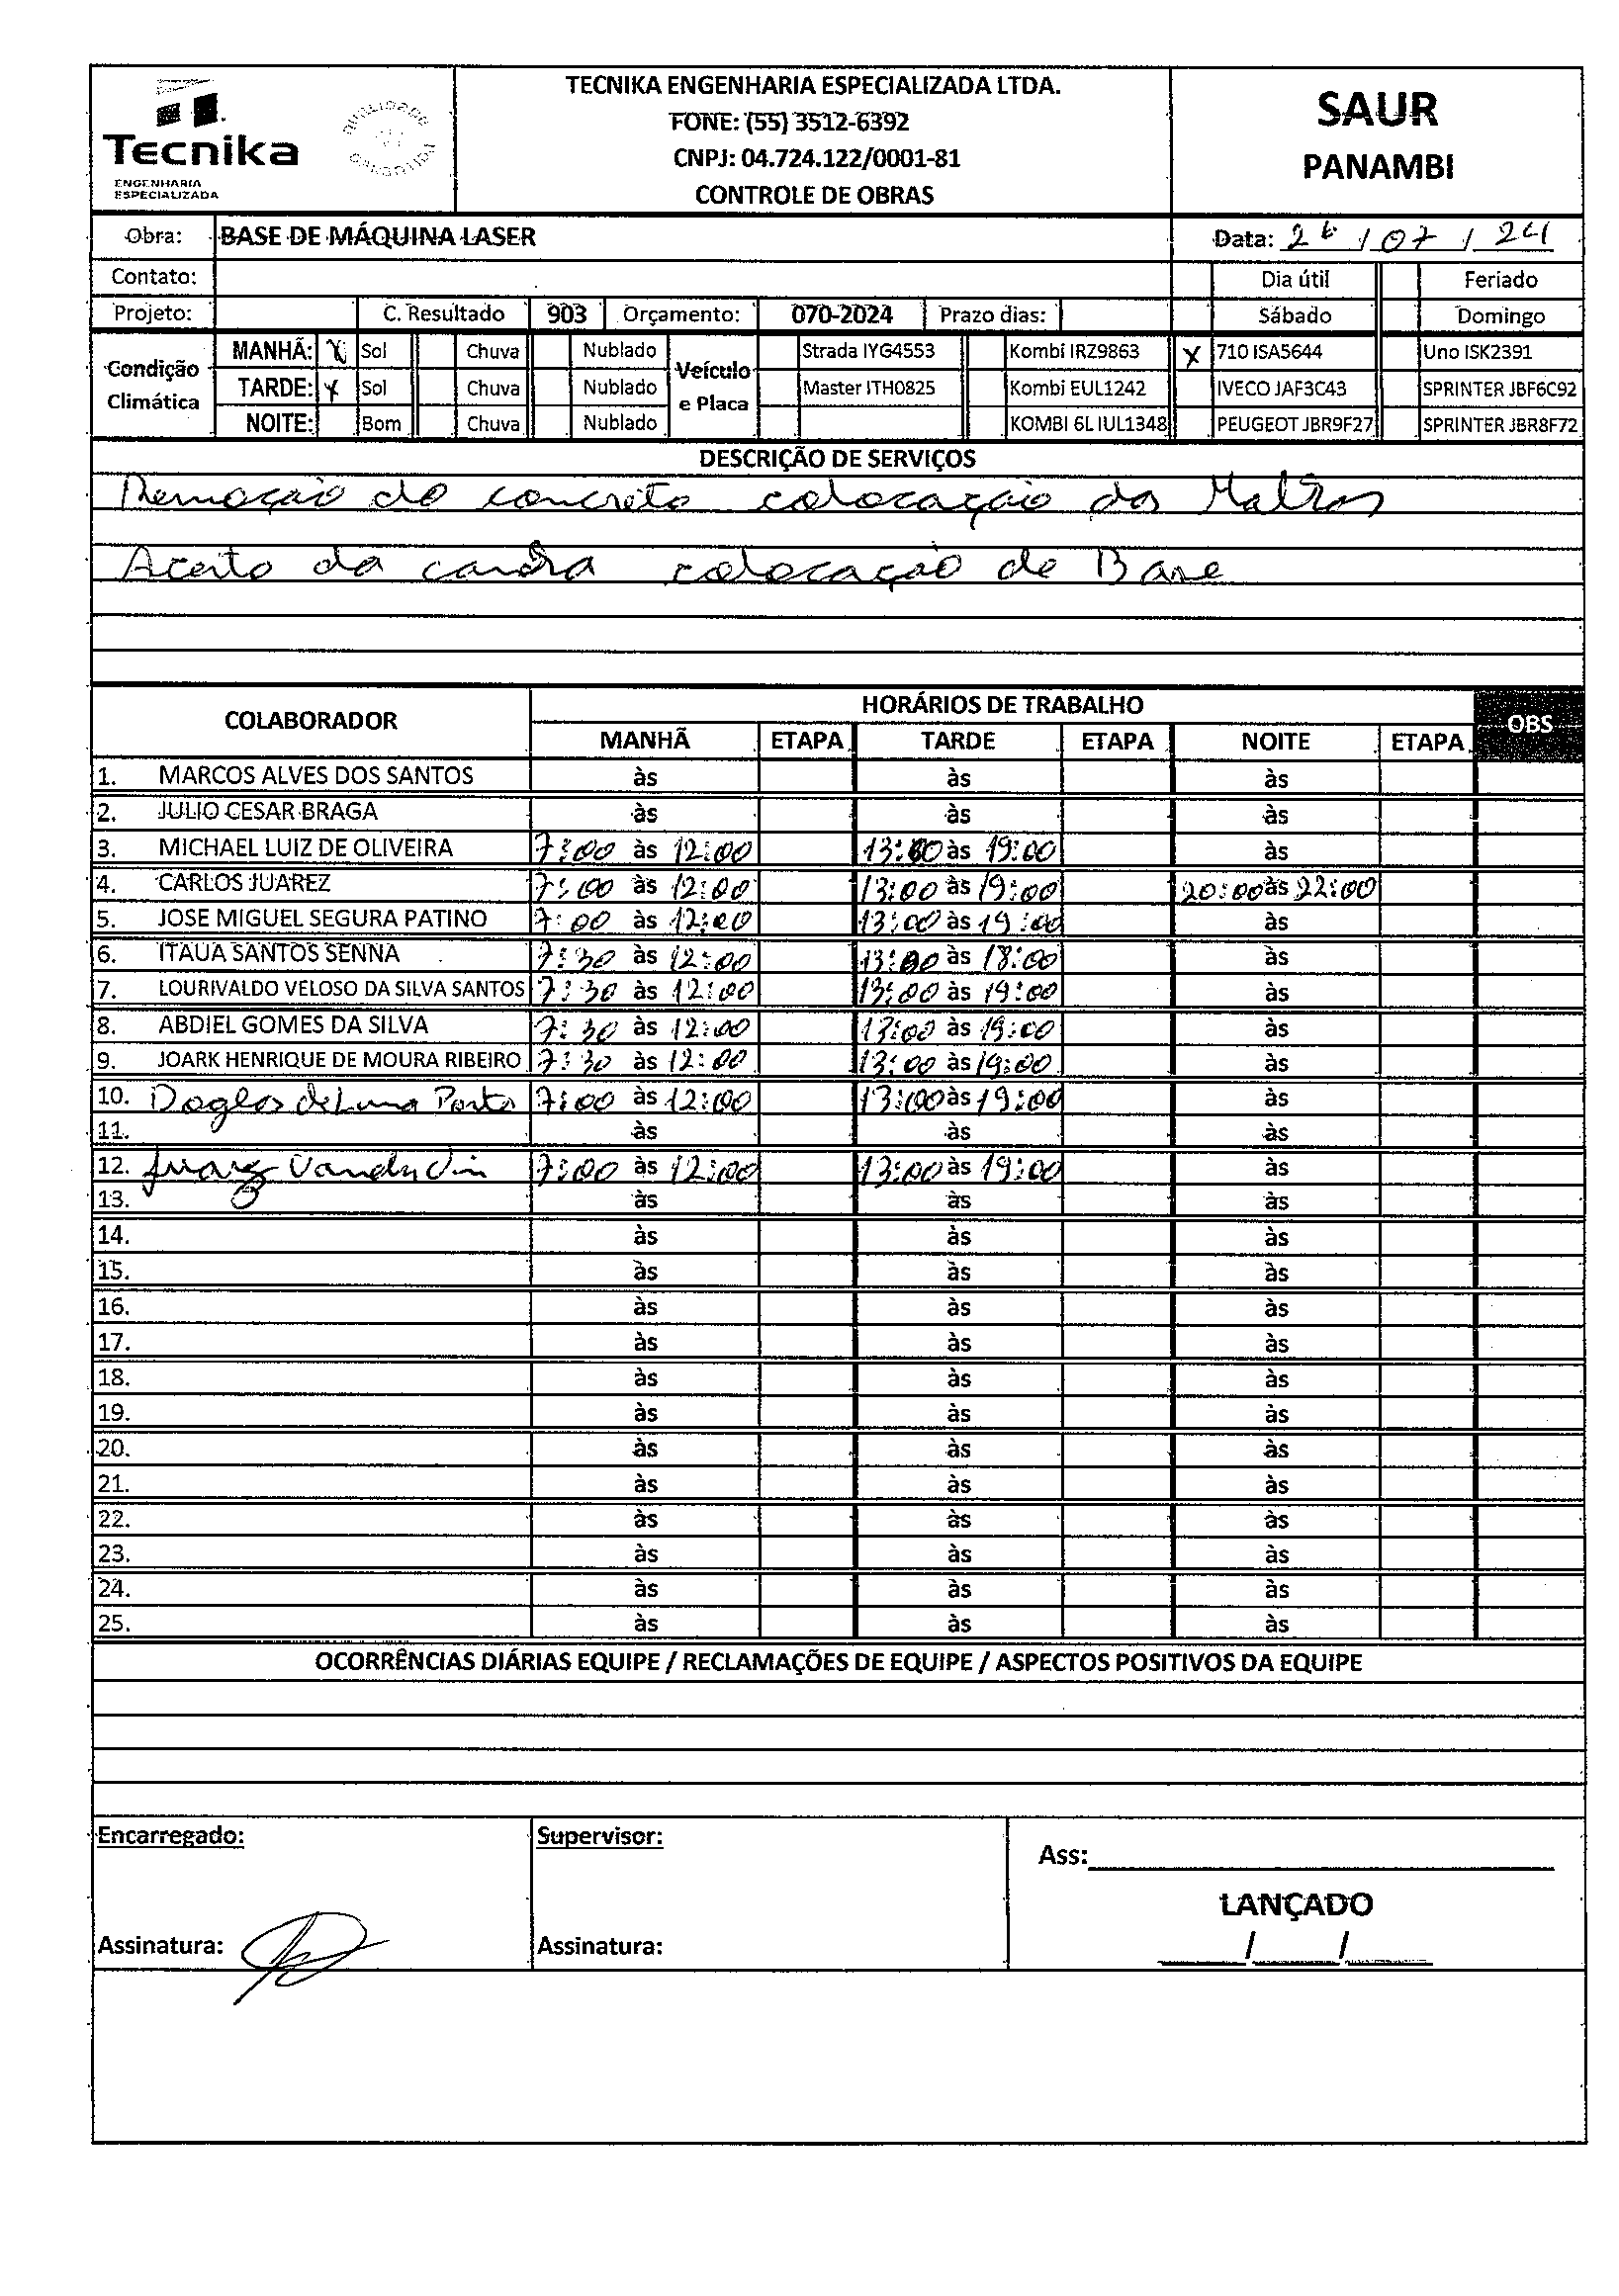 Tecnika
ENGENHARIA
ESPECIALIZADA
TECNIKA ENGENHARIA ESPECIALIZADA LTDA.
FONE: (55) 3512-6392
CNPJ: 04.724.122/0001-81
CONTROLE DE OBRAS
SAUR
PANAMBI
Obra: BASE DE MÁQUINA LASER Data: 26/07/24
Contato: Dia útil Feriado
Projeto: C. Resultado 903 Orçamento: 070-2024 Prazo dias: Sábado Domingo
Condição Climática
MANHÃ: X Sol Chuva Nublado
TARDE: X Sol Chuva Nublado
NOITE: Bom Chuva Nublado
Veículo e Placa
Strada IYG4553 Kombi IRZ9863 X 710 ISA5644 Uno ISK2391
Master ITH0825 Kombi EUL1242 IVECO JAF3C43 SPRINTER JBF6C92
KOMBI 6L IUL1348 PEUGEOT JBR9F27 SPRINTER JBR8F72
DESCRIÇÃO DE SERVIÇOS
Remoção do concreto colocação das
Aceito da colocação de Base
COLABORADOR HORÁRIOS DE TRABALHO OBS
MANHÃ ETAPA TARDE ETAPA NOITE ETAPA
1. MARCOS ALVES DOS SANTOS às às às
2. JULIO CESAR BRAGA às às às
3. MICHAEL LUIZ DE OLIVEIRA 7:00 às 12:00 13:00 às 19:00 às
4. CARLOS JUAREZ 7:00 às 12:00 13:00 às 19:00 20:00 às 22:00
5. JOSE MIGUEL SEGURA PATINO 7:00 às 12:00 13:00 às 19:00 às
6. ITAUA SANTOS SENNA 7:30 às 12:00 13:00 às 18:00 às
7. LOURIVALDO VELOSO DA SILVA SANTOS 7:30 às 12:00 13:00 às 19:00 às
8. ABDIEL GOMES DA SILVA 7:30 às 12:00 13:00 às 19:00 às
9. JOARK HENRIQUE DE MOURA RIBEIRO 7:30 às 12:00 13:00 às 19:00 às
10. Doglas de Luna Porto 7:00 às 12:00 13:00 às 19:00 às
11. às às às
12. 7:00 às 12:00 13:00 às 19:00 às
13. às às às
14. às às às
15. às às às
16. às às às
17. às às às
18. às às às
19. às às às
20. às às às
21. às às às
22. às às às
23. às às às
24. às às às
25. às às às
OCORRÊNCIAS DIÁRIAS EQUIPE / RECLAMAÇÕES DE EQUIPE / ASPECTOS POSITIVOS DA EQUIPE
Encarregado: Supervisor: Ass:
LANÇADO
Assinatura: Assinatura: / /